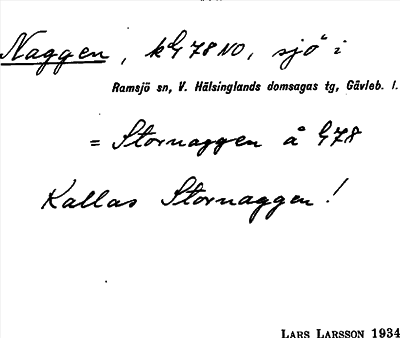 Naggen, kbl G 78 NO, sjö i
Ramsjö sn, V. Hälsinglands domsagas tg, Gävleb. l.
= Stornaggen å G 78
Kallas Stornaggen!
LARS LARSSON 1934